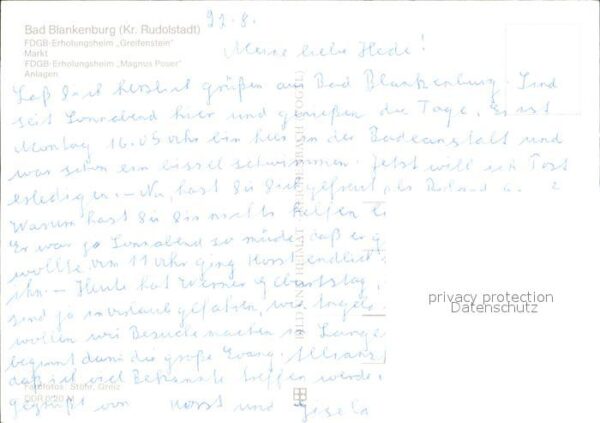 22.8.
Bad Blankenburg (Kr. Rudolstadt)
FDGB-Erholungsheim „Greifenstein"
Markt
FDGB-Erholungsheim „Magnus Poser"
Anlagen
Meine liebe Hede!
Laß Dich herzlich grüßen aus Bad Blankenburg. Sind
seit Sonnabend hier und genießen die Tage. Es ist
Montag 16.05 Uhr bin hier in der Badeanstalt und
war schon ein bissel schwimmen. Jetzt will ich Post
erledigen. – Na, hast Du Dich gefreut, als Roland
Warum hast Du Dir nichts helfen
Er war ja Sonnabend so müde, daß er
wollte. Um 11 Uhr ging Horst endlich
ihn. – Heute hat Werner Geburtstag,
sind ja in Urlaub gefahren,
wollen wir Besuche machen in
beginnt dann die große Evang. Allianz
daß ich viel Bekannte treffen werde.
gegrüßt von Horst und Gisela
BILD UND HEIMAT REICHENBACH (VOGTL)
Farbfotos: Stöhr, Greiz
DDR 0,20 M
privacy protection
Datenschutz